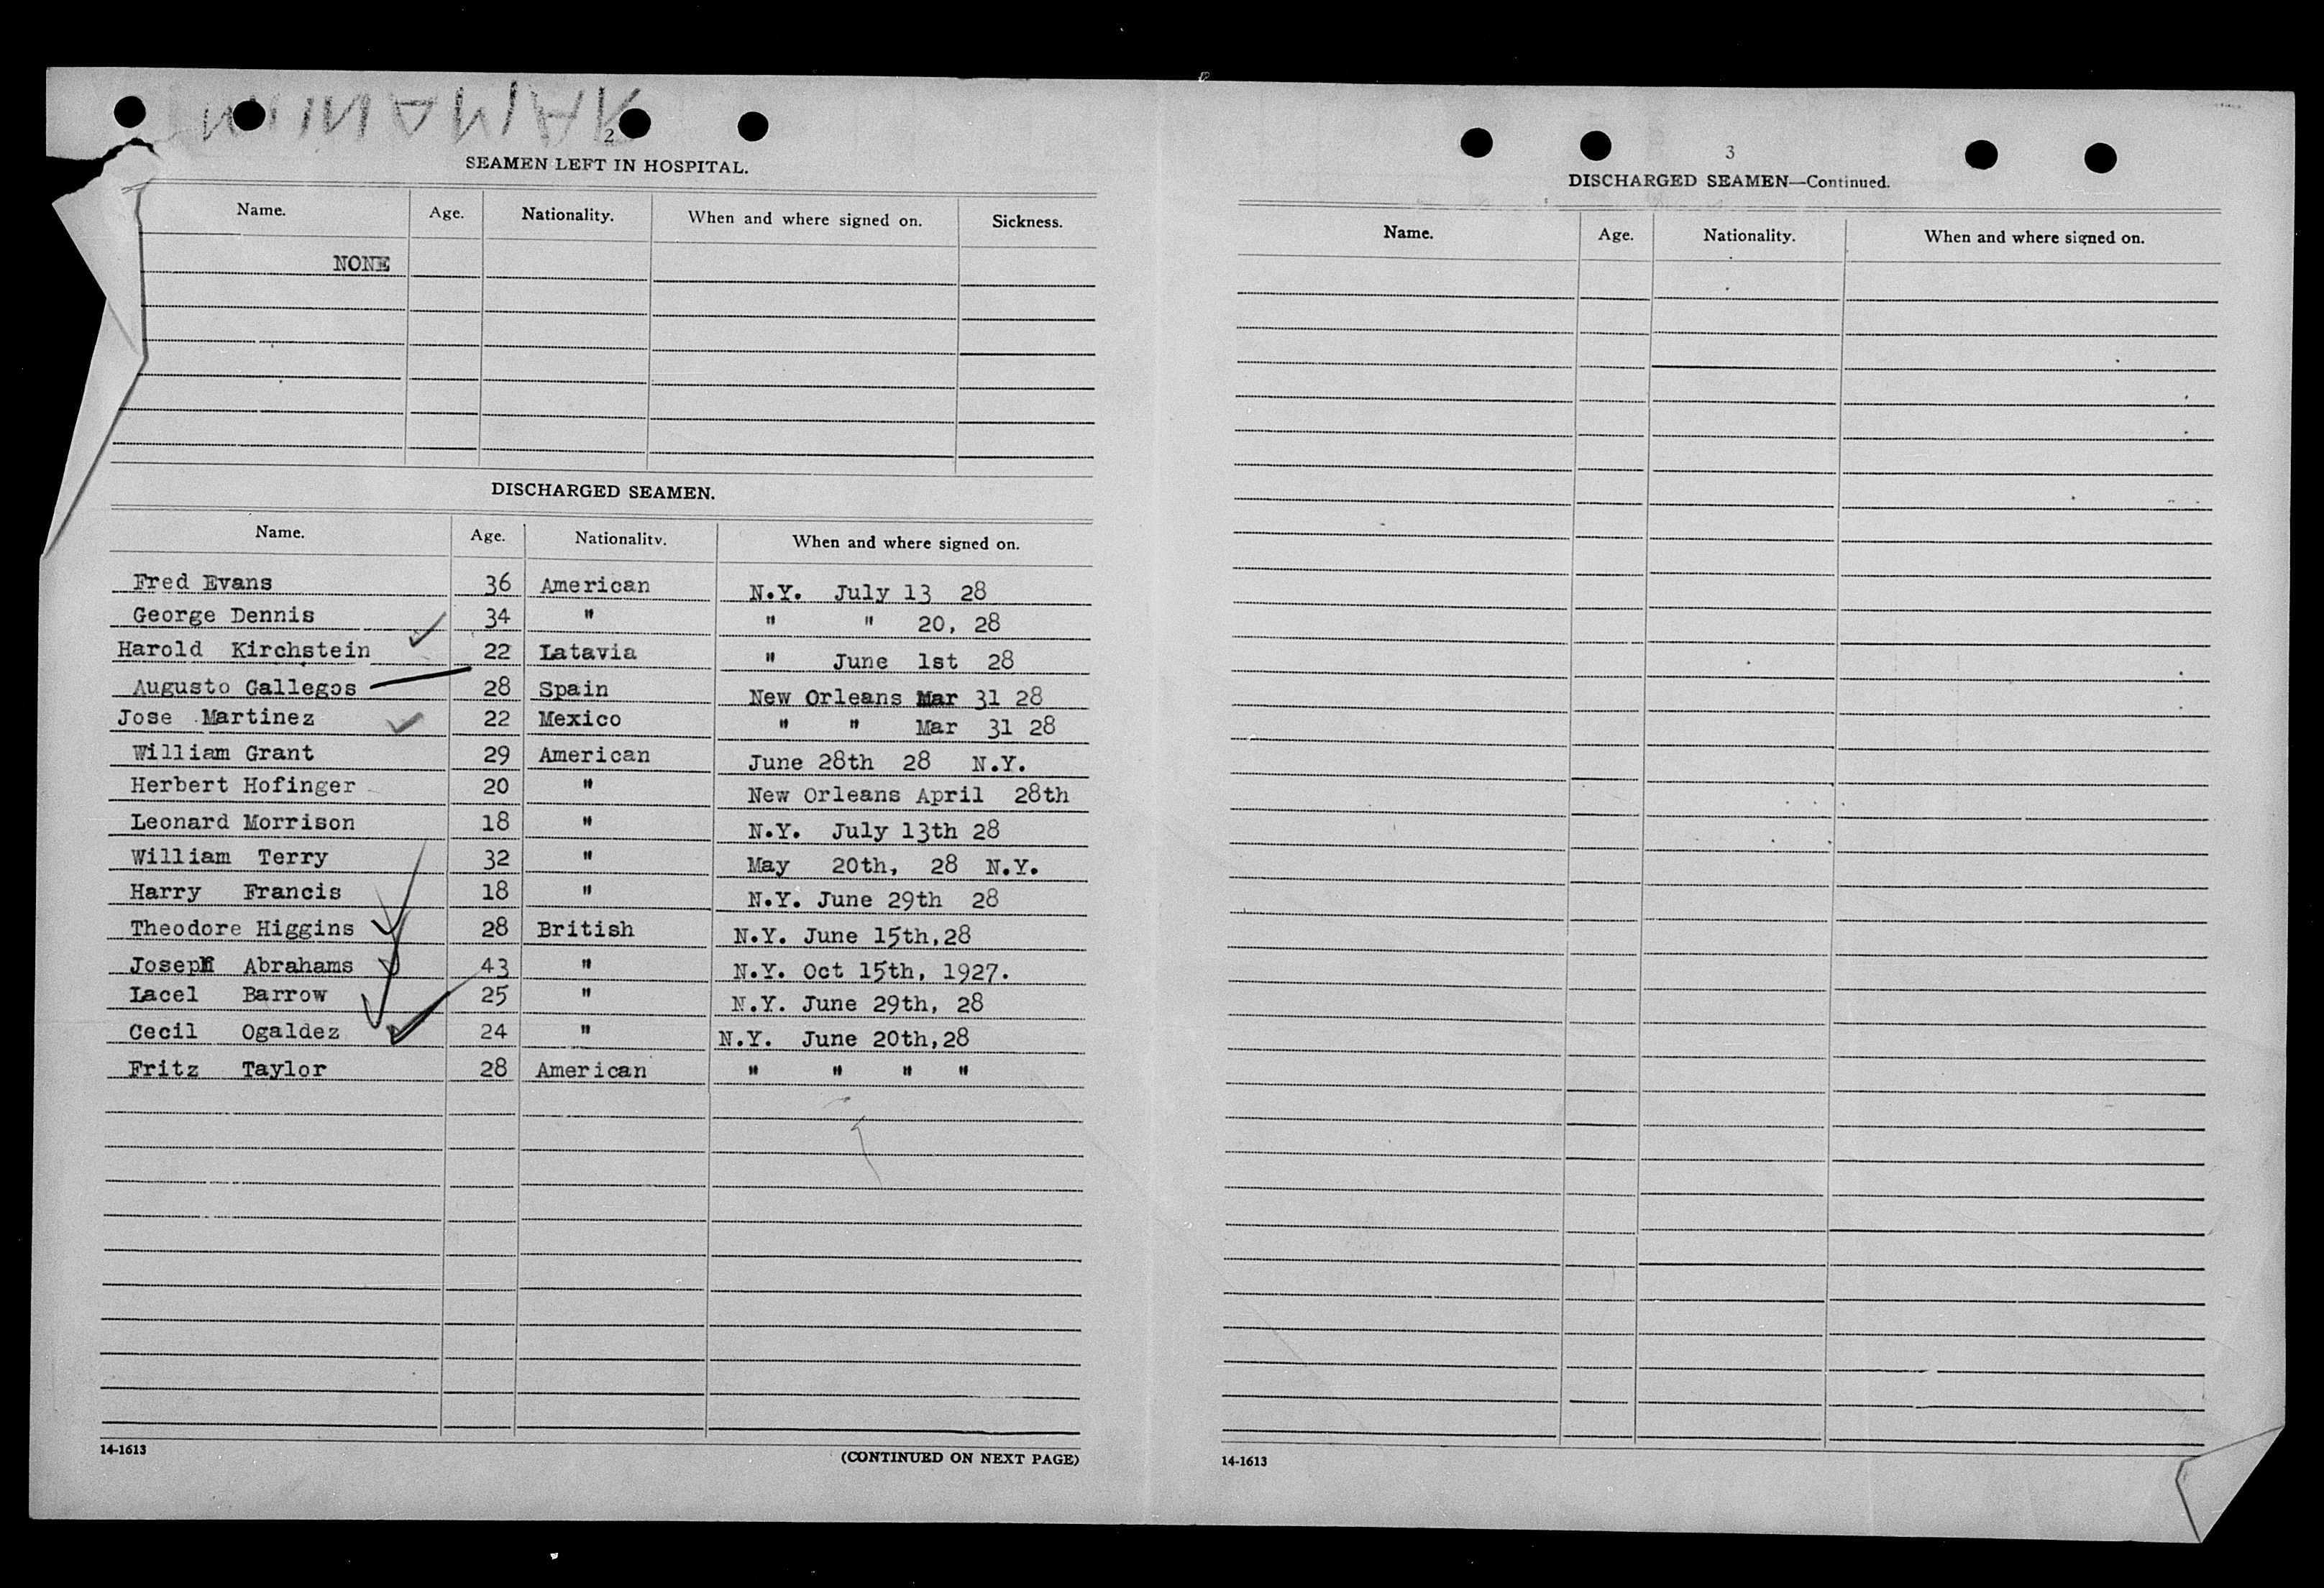 2
SEAMEN LEFT IN HOSPITAL.
Name. Age. Nationality. When and where signed on. Sickness.
NONE
DISCHARGED SEAMEN.
Name. Age. Nationality. When and where signed on.
Fred Evans 36 American N.Y. July 13 28
George Dennis 34 " " " 20, 28
Harold Kirchstein 22 Latavia " June 1st 28
Augusto Gallegos 28 Spain New Orleans Mar 31 28
Jose Martinez 22 Mexico " " Mar 31 28
William Grant 29 American June 28th 28 N.Y.
Herbert Hofinger 20 " New Orleans April 28th
Leonard Morrison 18 " N.Y. July 13th 28
William Terry 32 " May 20th, 28 N.Y.
Harry Francis 18 " N.Y. June 29th 28
Theodore Higgins 28 British N.Y. June 15th,28
Joseph Abrahams 43 " N.Y. Oct 15th, 1927.
Lacel Barrow 25 " N.Y. June 29th, 28
Cecil Ogaldez 24 " N.Y. June 20th,28
Fritz Taylor 28 American " " " "
14-1613
(CONTINUED ON NEXT PAGE)
3
DISCHARGED SEAMEN—Continued.
Name. Age. Nationality. When and where signed on.
14-1613